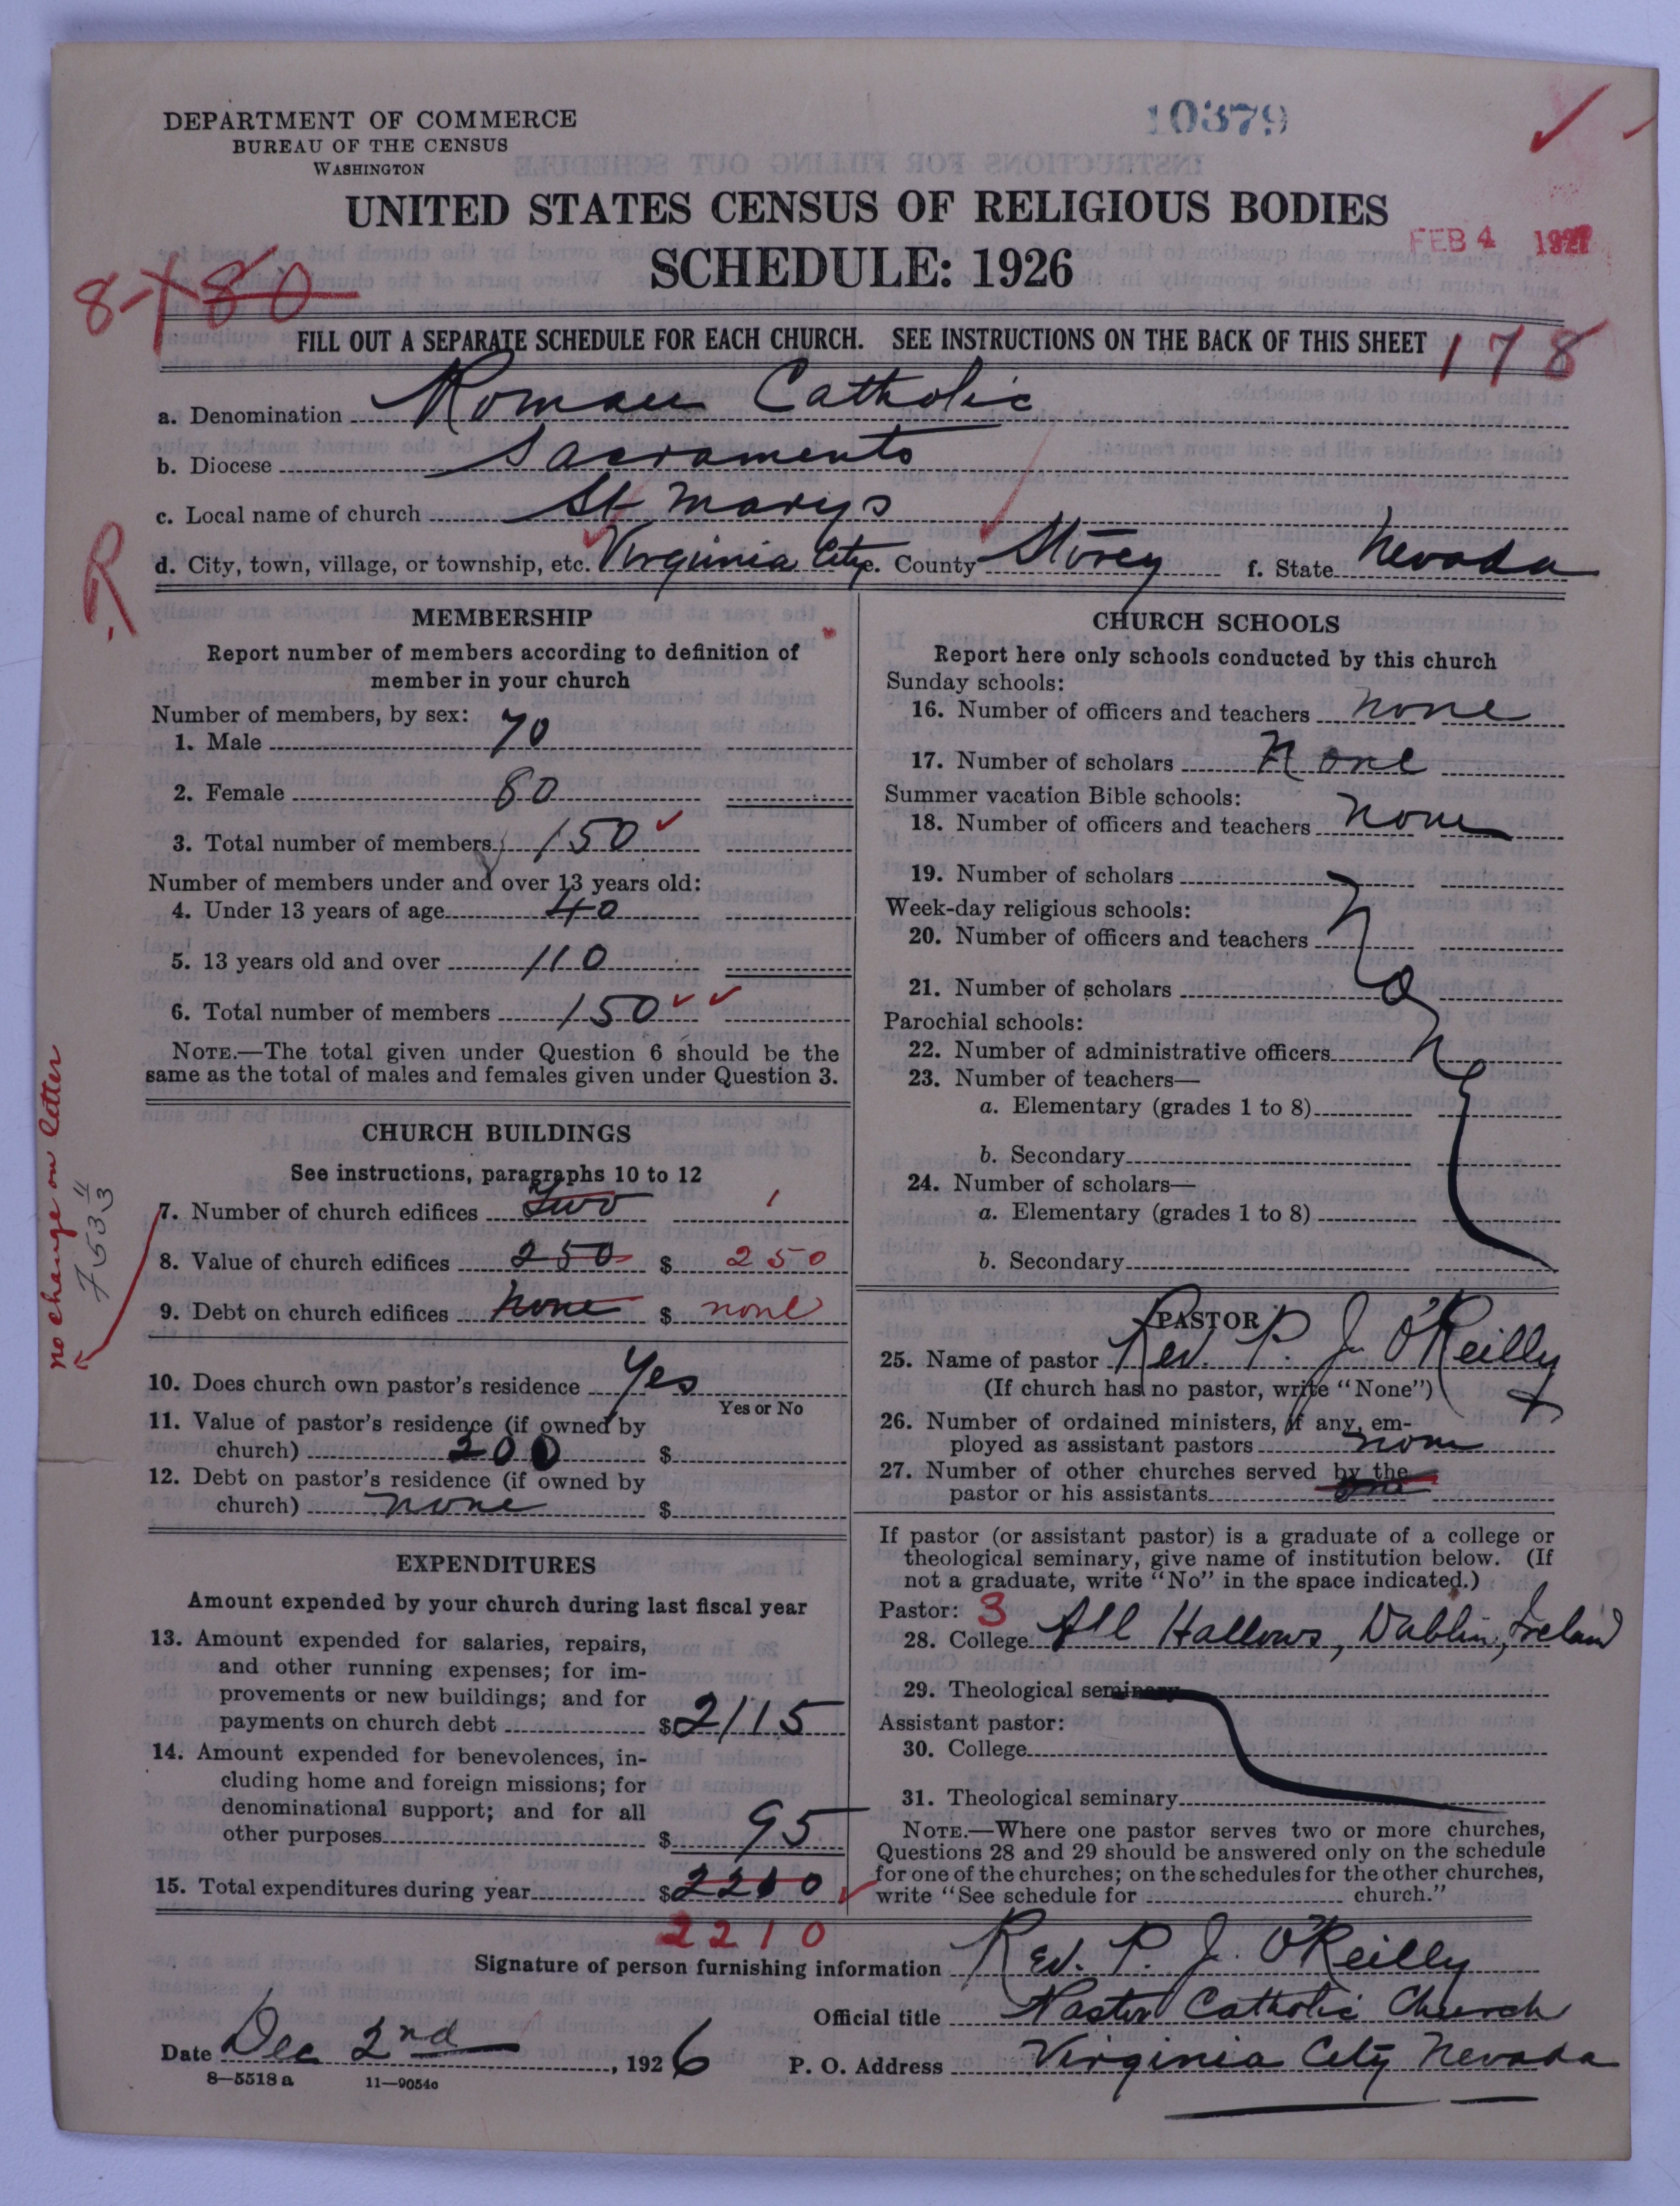 DEPARTMENT OF COMMERCE
BUREAU OF THE CENSUS
WASHINGTON
10379
UNITED STATES CENSUS OF RELIGIOUS BODIES
SCHEDULE: 1926
FEB 4 1927
8-X 80
FILL OUT A SEPARATE SCHEDULE FOR EACH CHURCH. SEE INSTRUCTIONS ON THE BACK OF THIS SHEET
178
a. Denomination Roman Catholic
b. Diocese Sacramento
c. Local name of church St Marys
R
d. City, town, village, or township, etc. Virginia City e. County Storey f. State Nevada
MEMBERSHIP
Report number of members according to definition of
member in your church
Number of members, by sex:
1. Male 70
2. Female 80
3. Total number of members 150
Number of members under and over 13 years old:
4. Under 13 years of age 40
5. 13 years old and over 110
6. Total number of members 150
NOTE.—The total given under Question 6 should be the
same as the total of males and females given under Question 3.
CHURCH BUILDINGS
See instructions, paragraphs 10 to 12
7. Number of church edifices Two 1
8. Value of church edifices 250 $ 250
9. Debt on church edifices none $ none
no change on letter
10. Does church own pastor's residence Yes
Yes or No
11. Value of pastor's residence (if owned by
church) 200 $
12. Debt on pastor's residence (if owned by
church) none $
EXPENDITURES
Amount expended by your church during last fiscal year
13. Amount expended for salaries, repairs,
and other running expenses; for im-
provements or new buildings; and for
payments on church debt $2115
14. Amount expended for benevolences, in-
cluding home and foreign missions; for
denominational support; and for all
other purposes $ 95
15. Total expenditures during year $2210
2210
CHURCH SCHOOLS
Report here only schools conducted by this church
Sunday schools:
16. Number of officers and teachers none
17. Number of scholars None
Summer vacation Bible schools:
18. Number of officers and teachers none
19. Number of scholars
Week-day religious schools:
20. Number of officers and teachers
21. Number of scholars
Parochial schools:
22. Number of administrative officers
23. Number of teachers—
a. Elementary (grades 1 to 8)
b. Secondary
24. Number of scholars—
a. Elementary (grades 1 to 8)
b. Secondary
PASTOR
25. Name of pastor Rev. P. J. O'Reilly
(If church has no pastor, write "None")
26. Number of ordained ministers, if any, em-
ployed as assistant pastors none
27. Number of other churches served by the
pastor or his assistants one
If pastor (or assistant pastor) is a graduate of a college or
theological seminary, give name of institution below. (If
not a graduate, write "No" in the space indicated.)
Pastor: 3
28. College All Hallows, Dublin, Ireland
29. Theological seminary
Assistant pastor:
30. College
31. Theological seminary
NOTE.—Where one pastor serves two or more churches,
Questions 28 and 29 should be answered only on the schedule
for one of the churches; on the schedules for the other churches,
write "See schedule for church."
Signature of person furnishing information Rev. P. J. O'Reilly
Official title Pastor Catholic Church
Date Dec 2nd, 1926 P. O. Address Virginia City Nevada
8—5518 a 11—9054c